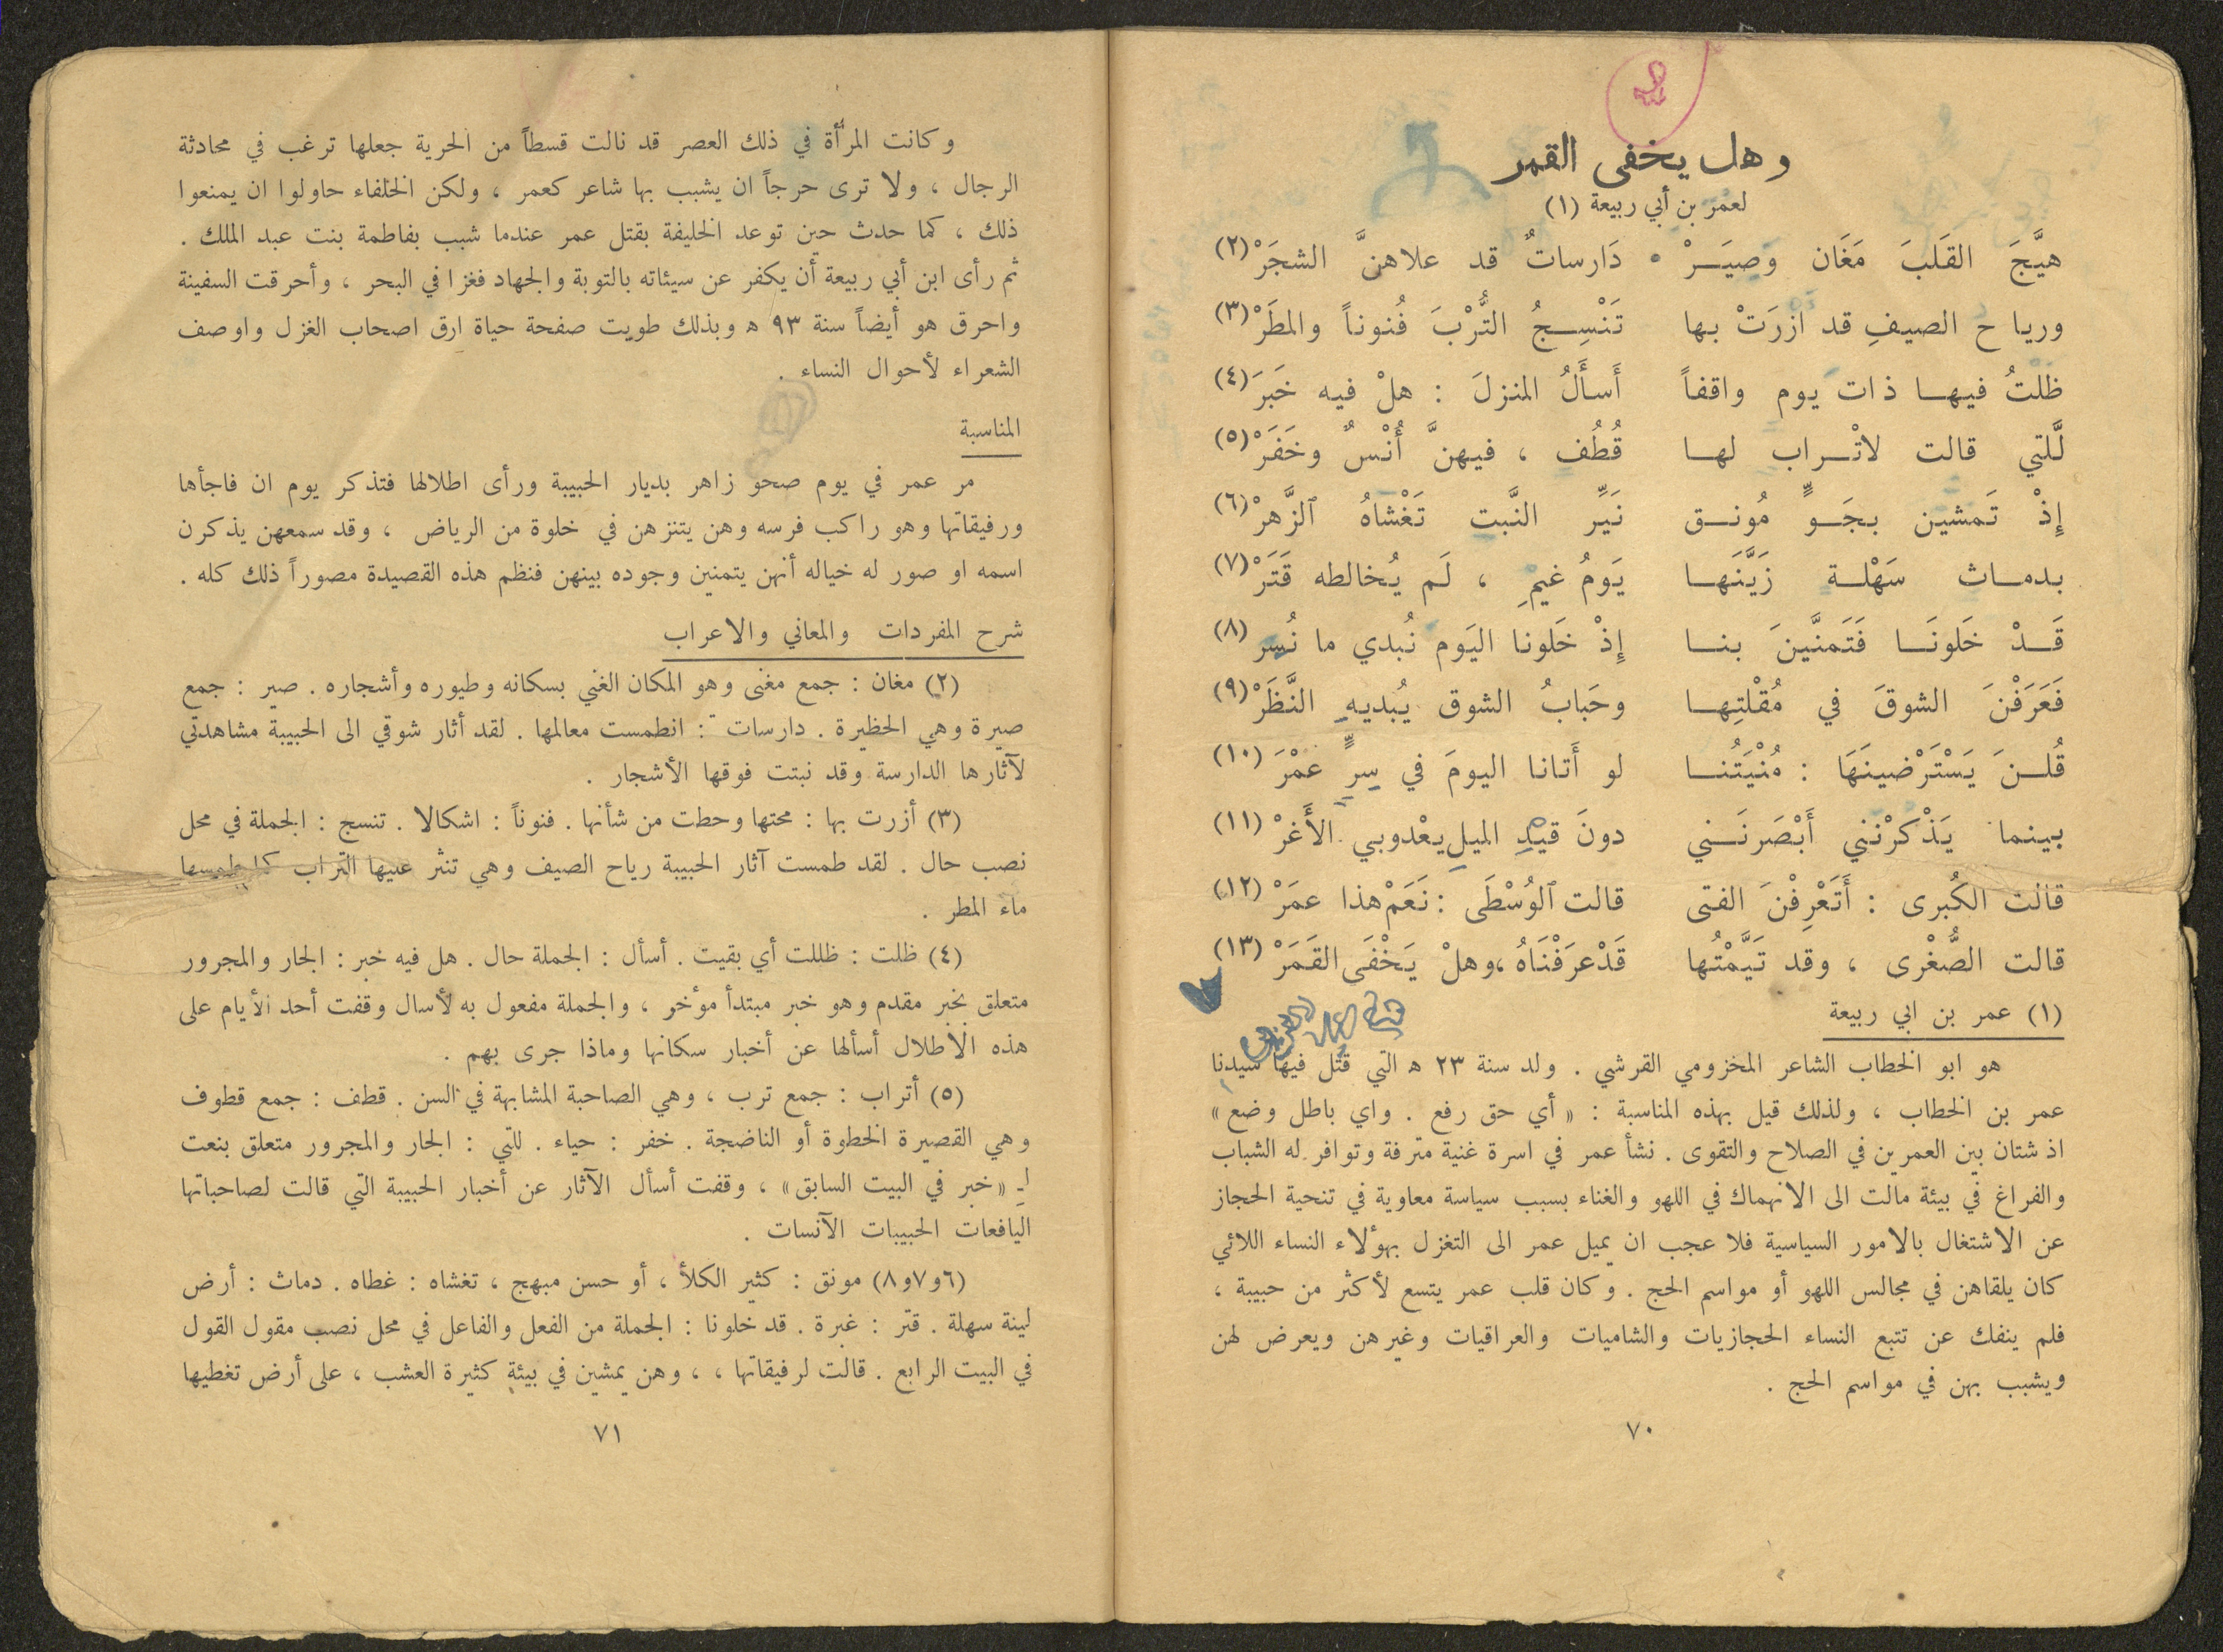 وهل يخفى القمر
لعمر بن أبي ربيعة (١)
هيَّجَ القَلبَ مَغَان وَصيَرْ دَارساتٌ قد علاهنَّ الشجَرْ (٢)
ورياح الصيفِ قد ازرَتْ بها تَنْسِجُ التُّرْبَ فُنوناً والمطَرْ (٣)
ظلْتُ فيها ذات يوم واقفاً أَسأَلُ المنزلَ : هلْ فيه خَبَرَ (٤)
لَّلتي قالت لاتْراب لها قُطُف ، فيهنَّ أُنْسٌ وخَفَرْ (٥)
إِذْ تَمشين بجَوٍّ مُونق نَيِّر النَّبت تَغْشاهُ ٱلزَّهرْ (٦)
بدماث سَهْلة زَيَّنَها يَومُ غيمٍ ، لَم يُخالطه قَتَرْ (٧)
قَدْ خَلونَا فَتَمنَّينَ بنا إِذْ خَلونا اليَوم نُبدي ما نُسر (٨)
فَعَرَفْنَ الشوقَ في مُقْلتِها وحَبابُ الشوق يُبديهِ النَّظَرْ (٩)
قُلنَ يَسْتَرْضينَهَا : مُنْيَتُنا لو أَتانا اليومَ في سِرٍّ عمْرَ (١٠)
بينما يَذْكرْنني أَبْصَرنَني دونَ قيْدِ الميلِ يعْدوبي الأَغرْ (١١)
قالت الكُبرى : أَتَعْرِفْنَ الفتى قالت ٱلوُسْطَى : نَعَمْ هذا عمَرْ (١٢)
قالت الصُّغْرى ، وقد تَيَّمْتُها قَدْ عرَفْنَاهُ ، وهلْ يَخْفَى القَمَرْ (١٣)
(١) عمر بن ابي ربيعة
هو ابو الخطاب الشاعر المخزومي القرشي . ولد سنة ٢٣ ه التي قتل فيها سيدنا
عمر بن الخطاب ، ولذلك قيل بهذه المناسبة : « أي حق رفع . واي باطل وضع »
اذ شتان بين العمرين في الصلاح والتقوى . نشأ عمر في اسرة غنية مترفة وتوافر له الشباب
والفراغ في بيئة مالت الى الانهماك في اللهو والغناء بسبب سياسة معاوية في تنحية الحجاز
عن الاشتغال بالامور السياسية فلا عجب ان يميل عمر الى التغزل بهؤلاء النساء اللائي
كان يلقاهن في مجالس اللهو أو مواسم الحج . وكان قلب عمر يتسع لأكثر من حبيبة ،
فلم ينفك عن تتبع النساء الحجازيات والشاميات والعراقيات وغيرهن ويعرض لهن
ويشبب بهن في مواسم الحج .
٧٠
وكانت المرأة في ذلك العصر قد نالت قسطاً من الحرية جعلها ترغب في محادثة
الرجال ، ولا ترى حرجاً ان يشبب بها شاعر كعمر ، ولكن الخلفاء حاولوا ان يمنعوا
ذلك ، كما حدث حين توعد الخليفة بقتل عمر عندما شبب بفاطمة بنت عبد الملك .
ثم رأى ابن أبي ربيعة أن يكفر عن سيئاته بالتوبة والجهاد فغزا في البحر ، وأحرقت السفينة
واحرق هو أيضاً سنة ٩٣ ه وبذلك طويت صفحة حياة ارق اصحاب الغزل واوصف
الشعراء لأحوال النساء .
المناسبة
مر عمر في يوم صحو زاهر بديار الحبيبة ورأى اطلالها فتذكر يوم ان فاجأها
ورفيقاتها وهو راكب فرسه وهن يتنزهن في خلوة من الرياض ، وقد سمعهن يذكرن
اسمه او صور له خياله أنهن يتمنين وجوده بينهن فنظم هذه القصيدة مصوراً ذلك كله .
شرح المفردات والمعاني والاعراب
(٢) مغان : جمع مغنى وهو المكان الغني بسكانه وطيوره وأشجاره . صير : جمع
صيرة وهي الحظيرة . دارسات : انطمست معالمها . لقد أثار شوقي الى الحبيبة مشاهدتي
لآثارها الدارسة وقد نبتت فوقها الأشجار .
(٣) أزرت بها : محتها وحطت من شأنها . فنوناً : اشكالا . تنسج : الجملة في محل
نصب حال . لقد طمست آثار الحبيبة رياح الصيف وهي تنثر عليها التراب كما طمسها
ماء المطر .
(٤) ظلت : ظللت أي بقيت . أسأل : الجملة حال . هل فيه خبر : الجار والمجرور
متعلق بخبر مقدم وهو خبر مبتدأ مؤخر ، والجملة مفعول به لأسال وقفت أحد الأيام على
هذه الأطلال أسألها عن أخبار سكانها وماذا جرى بهم .
(٥) أتراب : جمع ترب ، وهي الصاحبة المشابهة في السن . قطف : جمع قطوف
وهي القصيرة الخطوة أو الناضجة . خفر : حياء . للتي : الجار والمجرور متعلق بنعت
لـِ « خبر في البيت السابق » ، وقفت أسأل الآثار عن أخبار الحبيبة التي قالت لصاحباتها
اليافعات الحبيبات الآنسات .
(٦و٧و٨) مونق : كثير الكلأ ، أو حسن مبهج ، تغشاه : غطاه . دماث : أرض
لينة سهلة . قتر : غبرة . قد خلونا : الجملة من الفعل والفاعل في محل نصب مقول القول
في البيت الرابع . قالت لرفيقاتها ، ، وهن يمشين في بيئة كثيرة العشب ، على أرض تغطيها
٧١